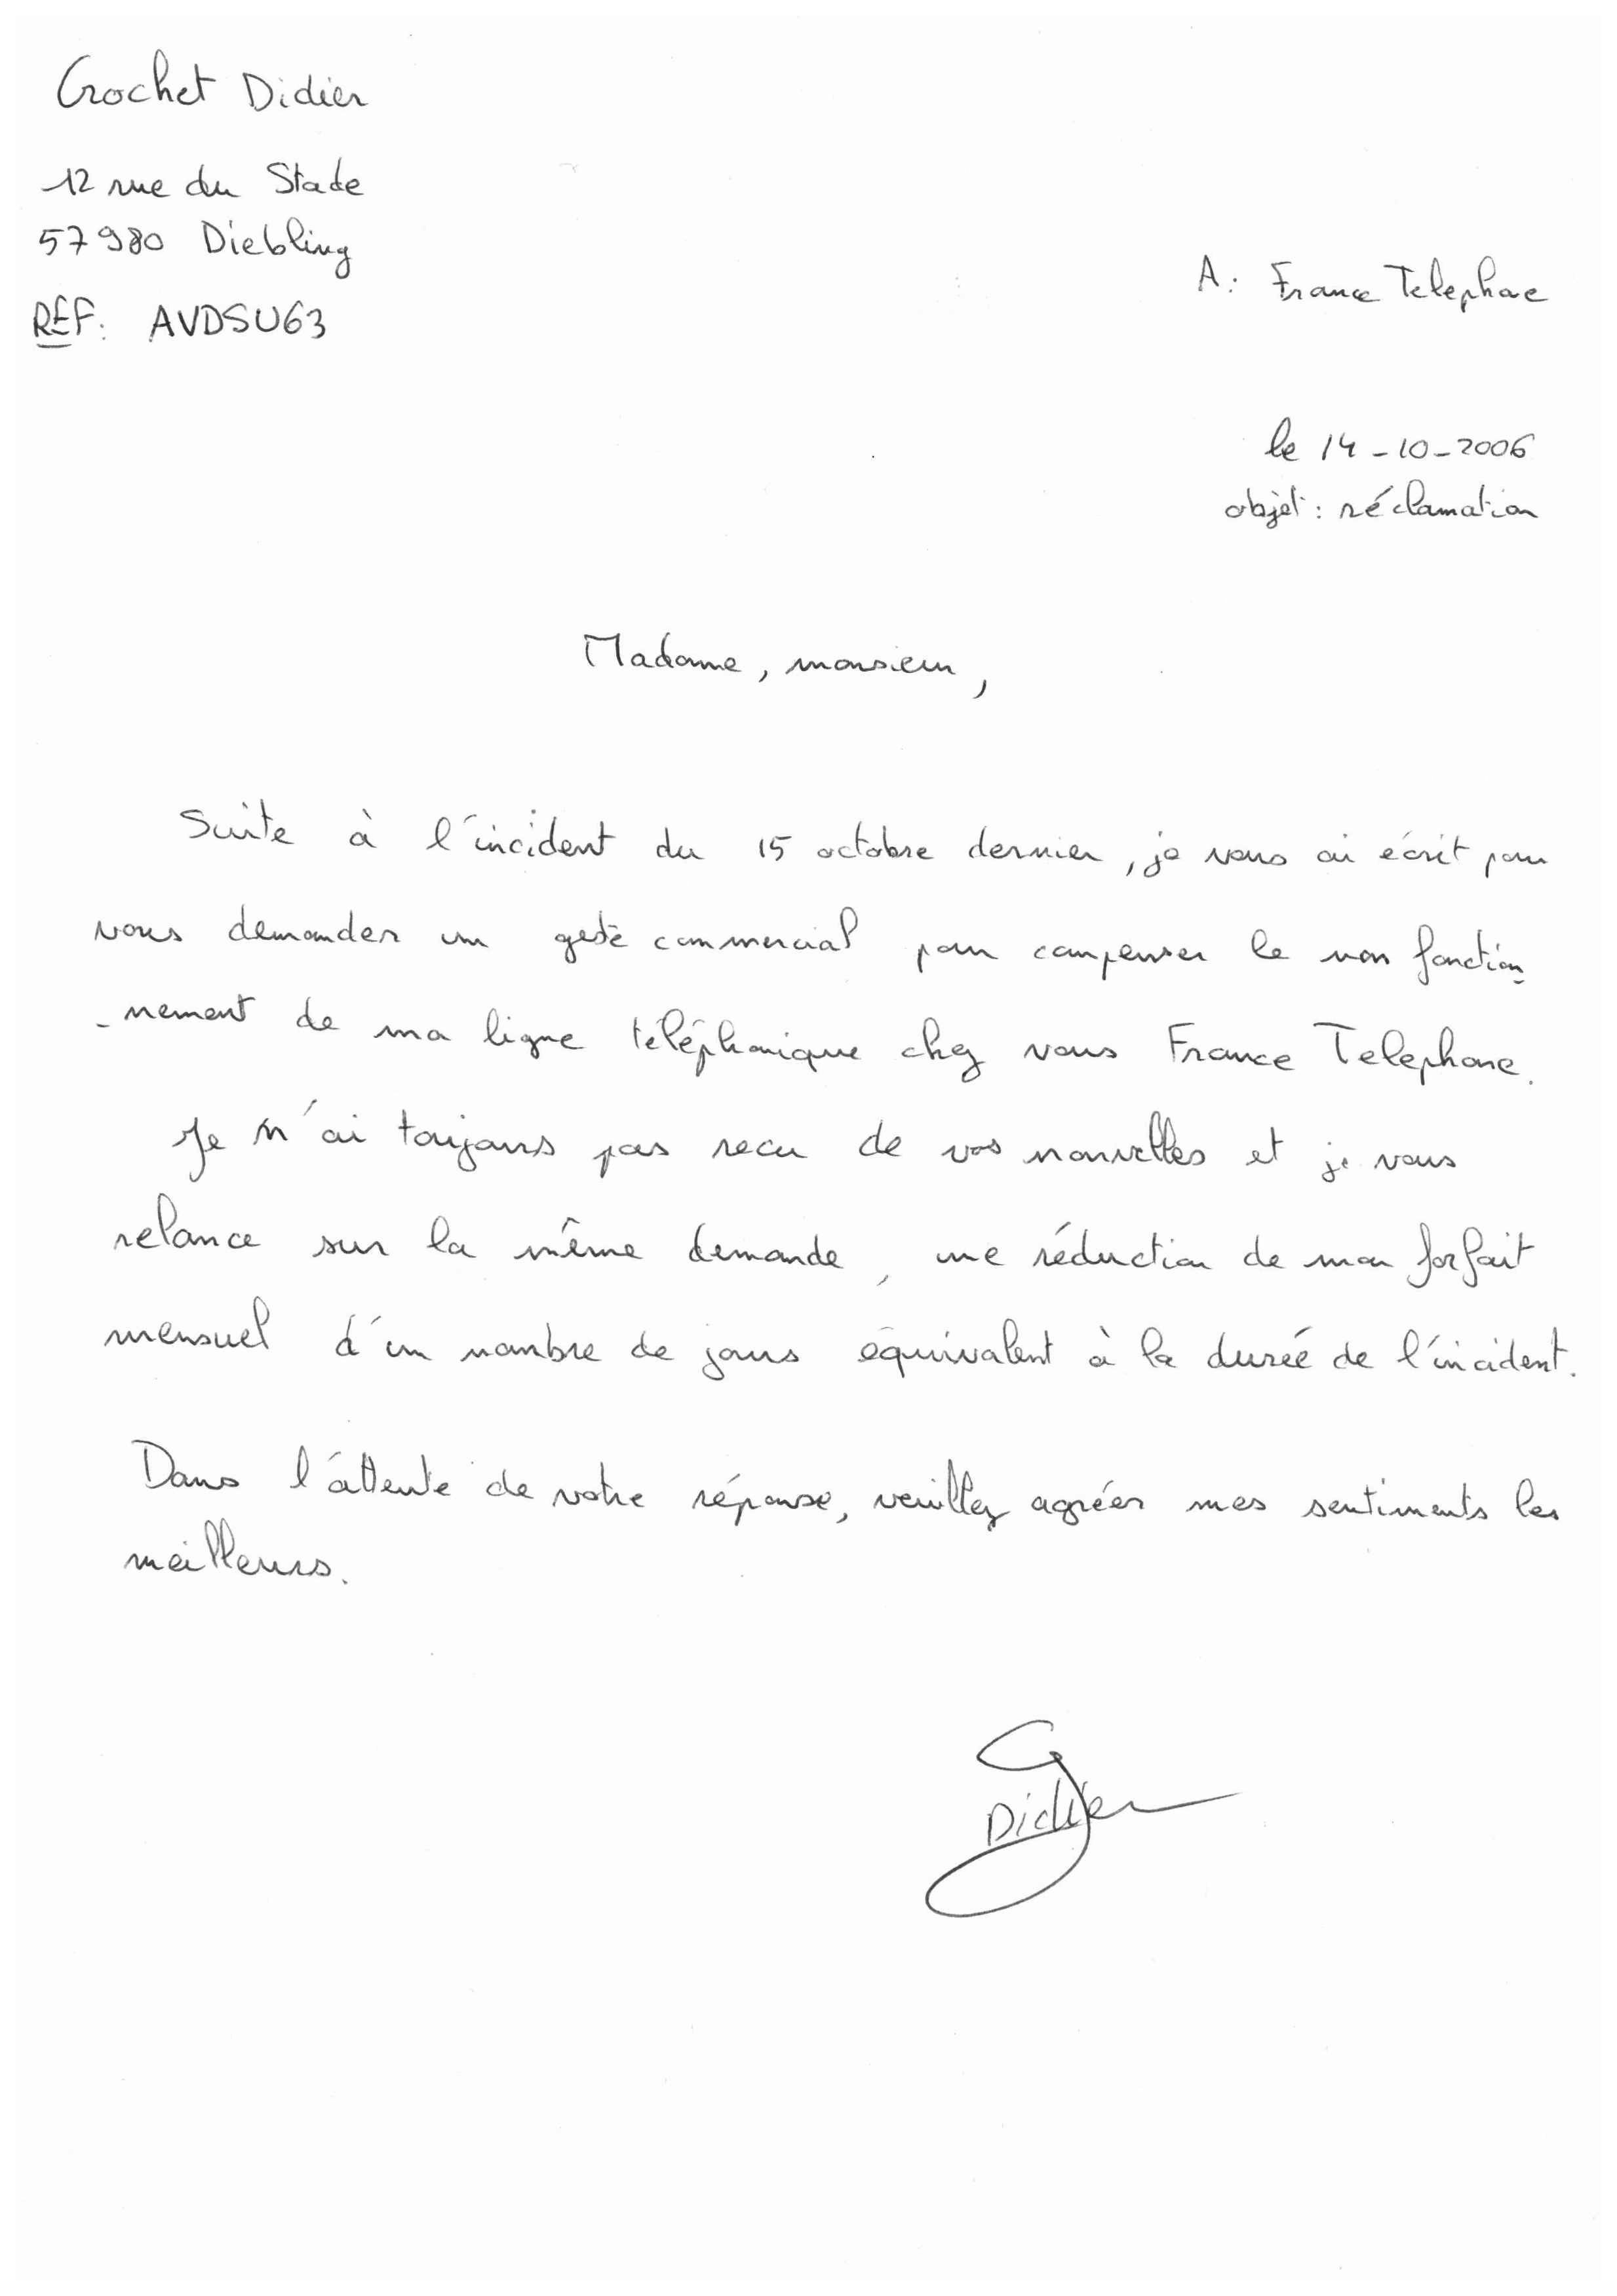 Crochet Didier
12 rue du Stade
57980 Diebling
REF: AVDSU63
A: France Telephone
le 14-10-2006
objet: réclamation
Madame, monsieur,
Suite à l'incident du 15 octobre dernier, je vous ai écrit pour
vous demander un geste commercial pour compenser le non fonction
-nement de ma ligne téléphonique chez vous France Telephone.
Je n'ai toujours pas recu de vos nouvelles et je vous
relance sur la même demande, une réduction de mon forfait
mensuel d'un nombre de jours équivalent à la durée de l'incident.
Dans l'attente de votre réponse, veuillez agréer mes sentiments les
meilleurs.
C
Didier